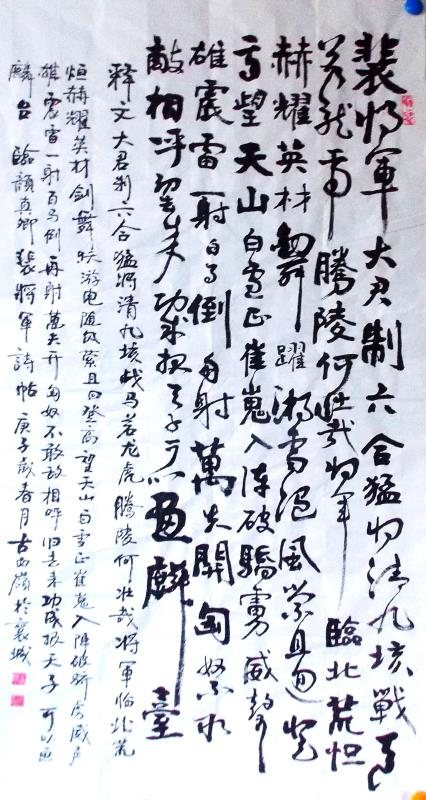 裴将軍大君制六合猛将清九垓戰馬
若龍虎騰陵何壯哉将軍臨北荒恒
赫耀英材劍舞躍游電随風縈且迴登
高望天山白雪正崔嵬入陣破驕虜威聲
雄震雷一射百馬倒再射萬夫開匈奴不敢
敵相呼歸去来功成报天子可以畫麟臺
释文大君制六合猛将清九垓战马若龙虎腾陵何壮哉将軍临北荒
烜赫耀英材剑舞跃游电随风萦且回登高望天山白雪正崔嵬入阵破骄虏威声
雄震雷一射百马倒再射萬夫开匈奴不敢敌相呼归去来功成报天子可以画
麟台臨顔真卿裴將軍詩帖庚子歲春月古西嶺於襄城